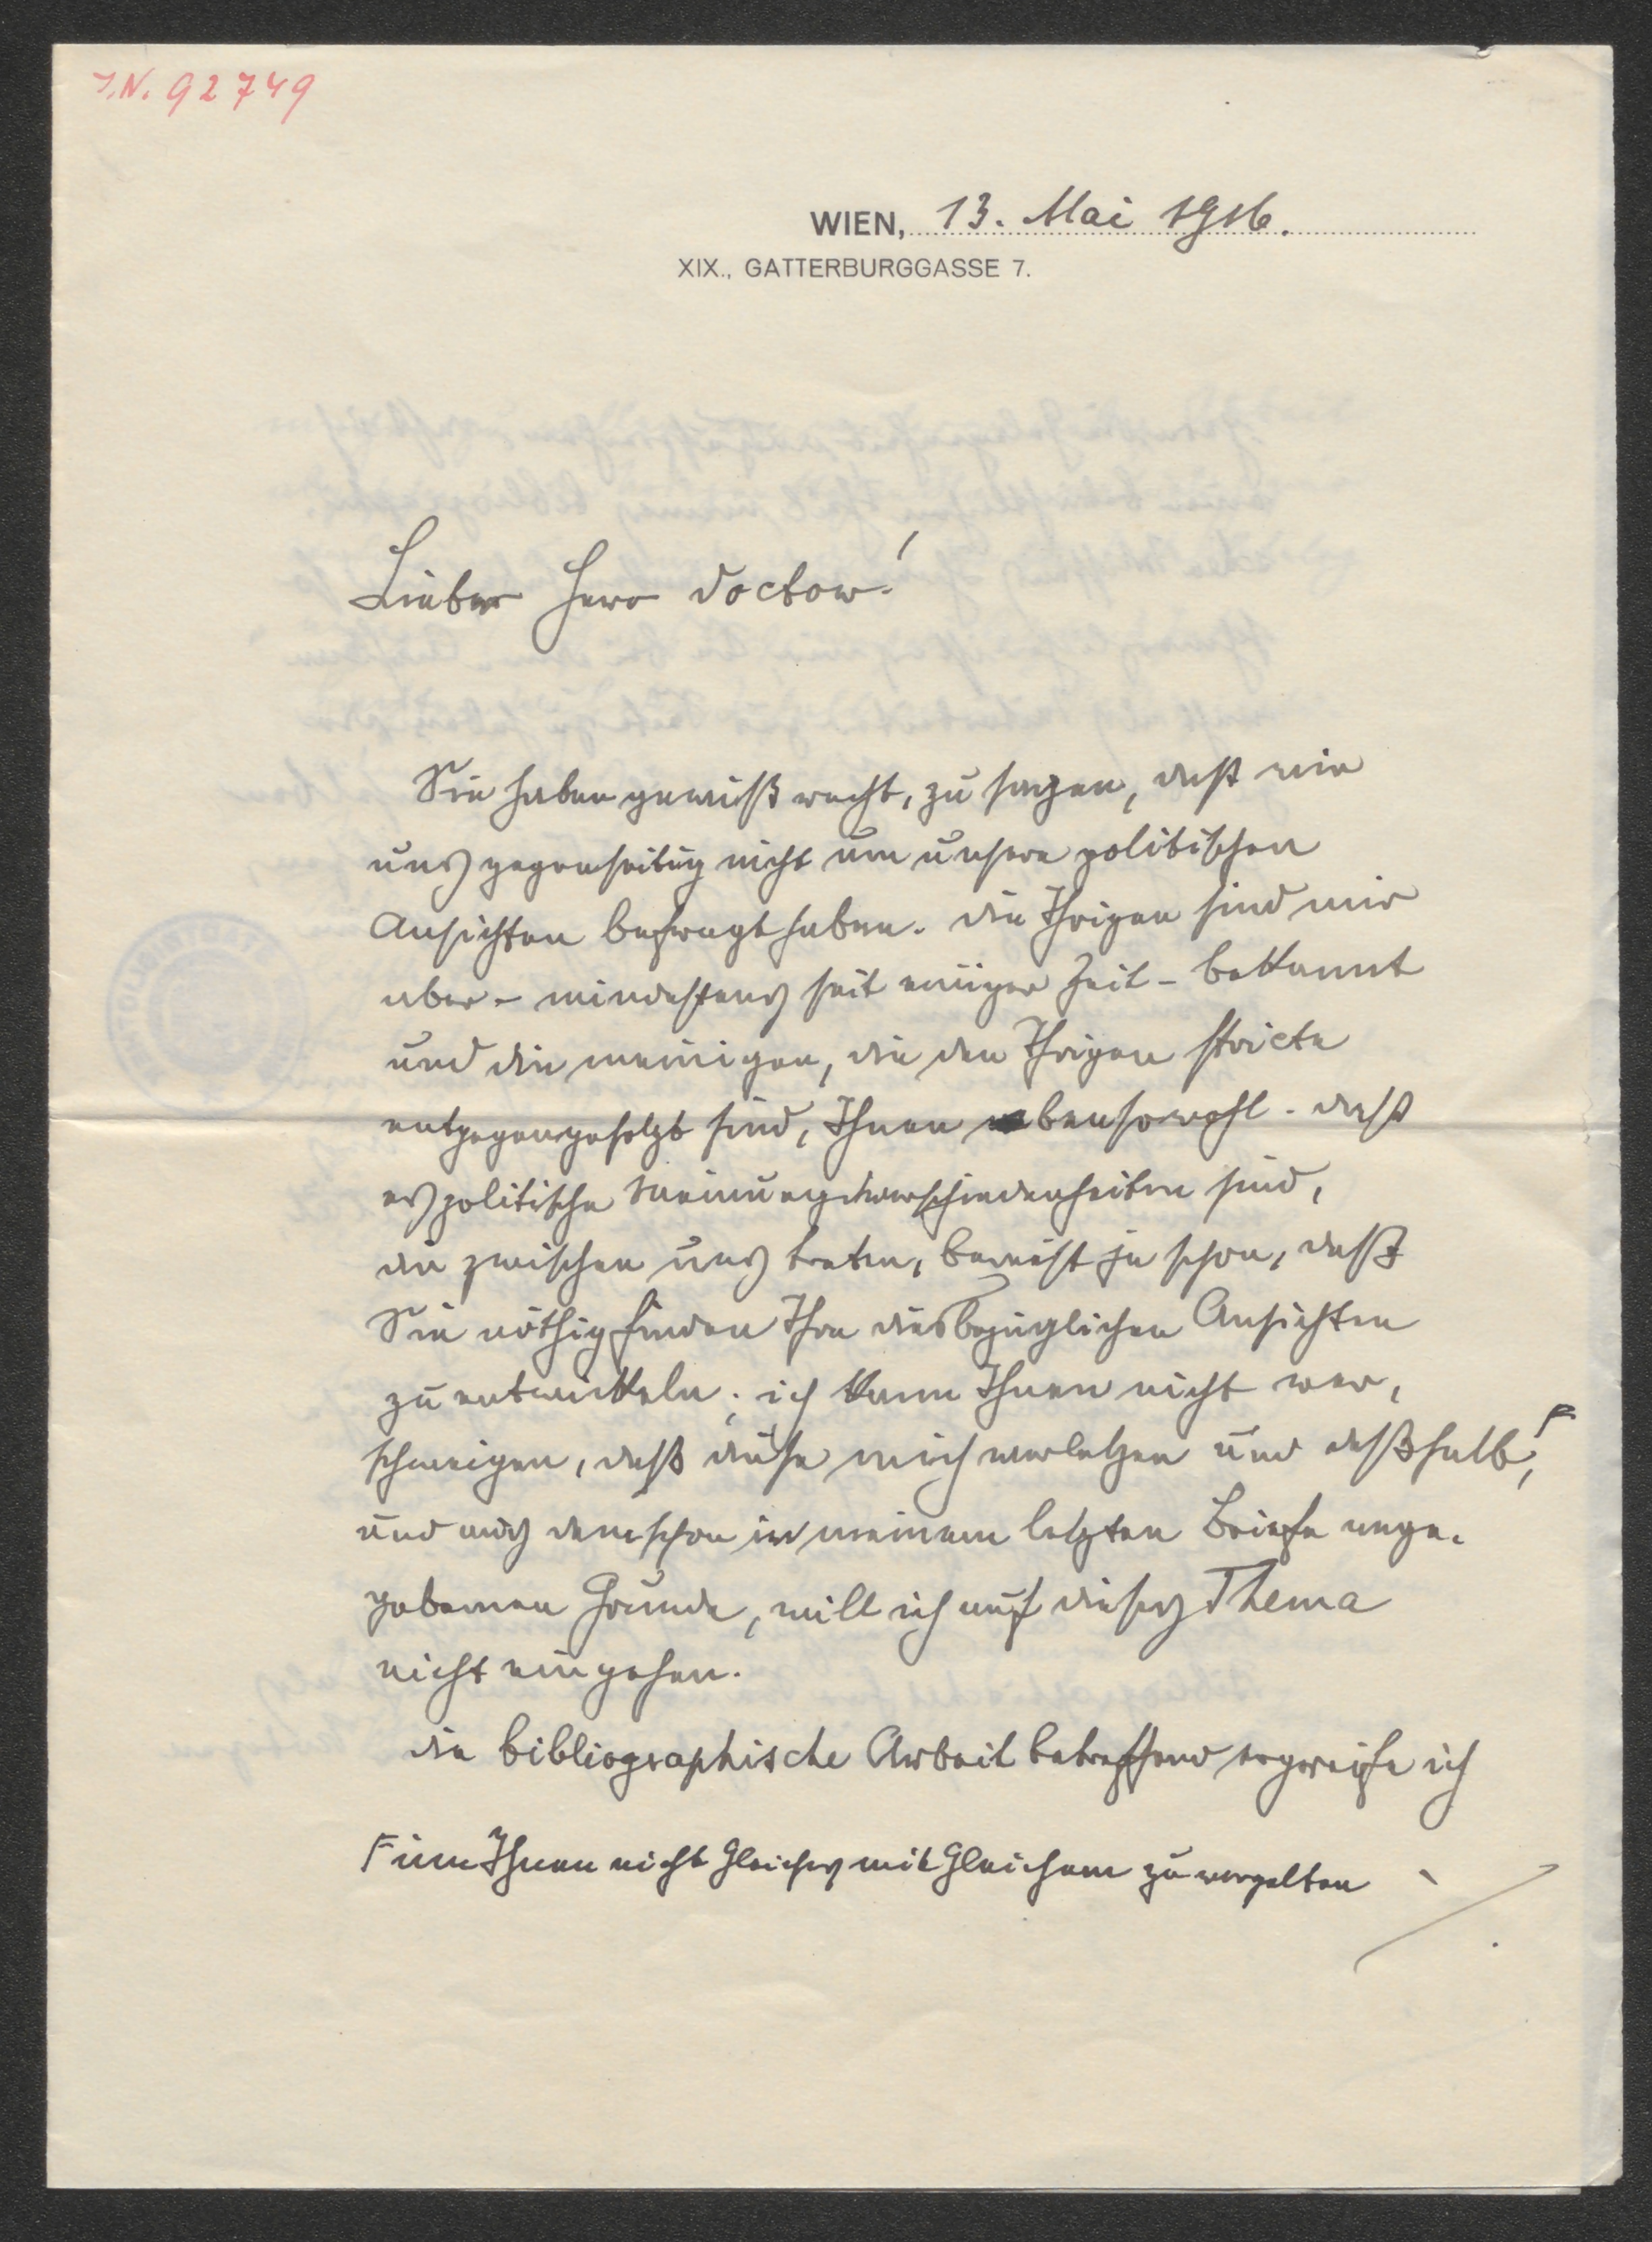 I.N. 92749
WIEN, 13. Mai 1916.
XIX., GATTERBURGGASSE 7.
Lieber Herr Doctor!
Sie haben gewiß recht, zu sagen, dass wir
uns gegenseitig nicht um unsere politischen
Ansichten befragt haben. Die Ihrigen sind mir
aber – mindestens seit einiger Zeit – bekannt
und die meinigen, die den Ihrigen stricte
entgegengesetzt sind, Ihnen ebensowohl. Dass
es politische Meinungsverschiedenheiten sind,
die zwischen uns treten, beweist ja schon, daß
Sie nöthig finden Ihre diesbezüglichen Ansichten
zu entwickeln; ich kann Ihnen nicht ver-
schweigen, daß diese mich verletzen und deßhalb, F
und aus dem schon in meinem letzten Briefe ange-
gebenen Grunde, will ich auf dieses Thema
nicht eingehen.
Die bibliographische Arbeit betreffend ergreife ich
F um Ihnen nicht Gleiches mit Gleichem zu vergelten